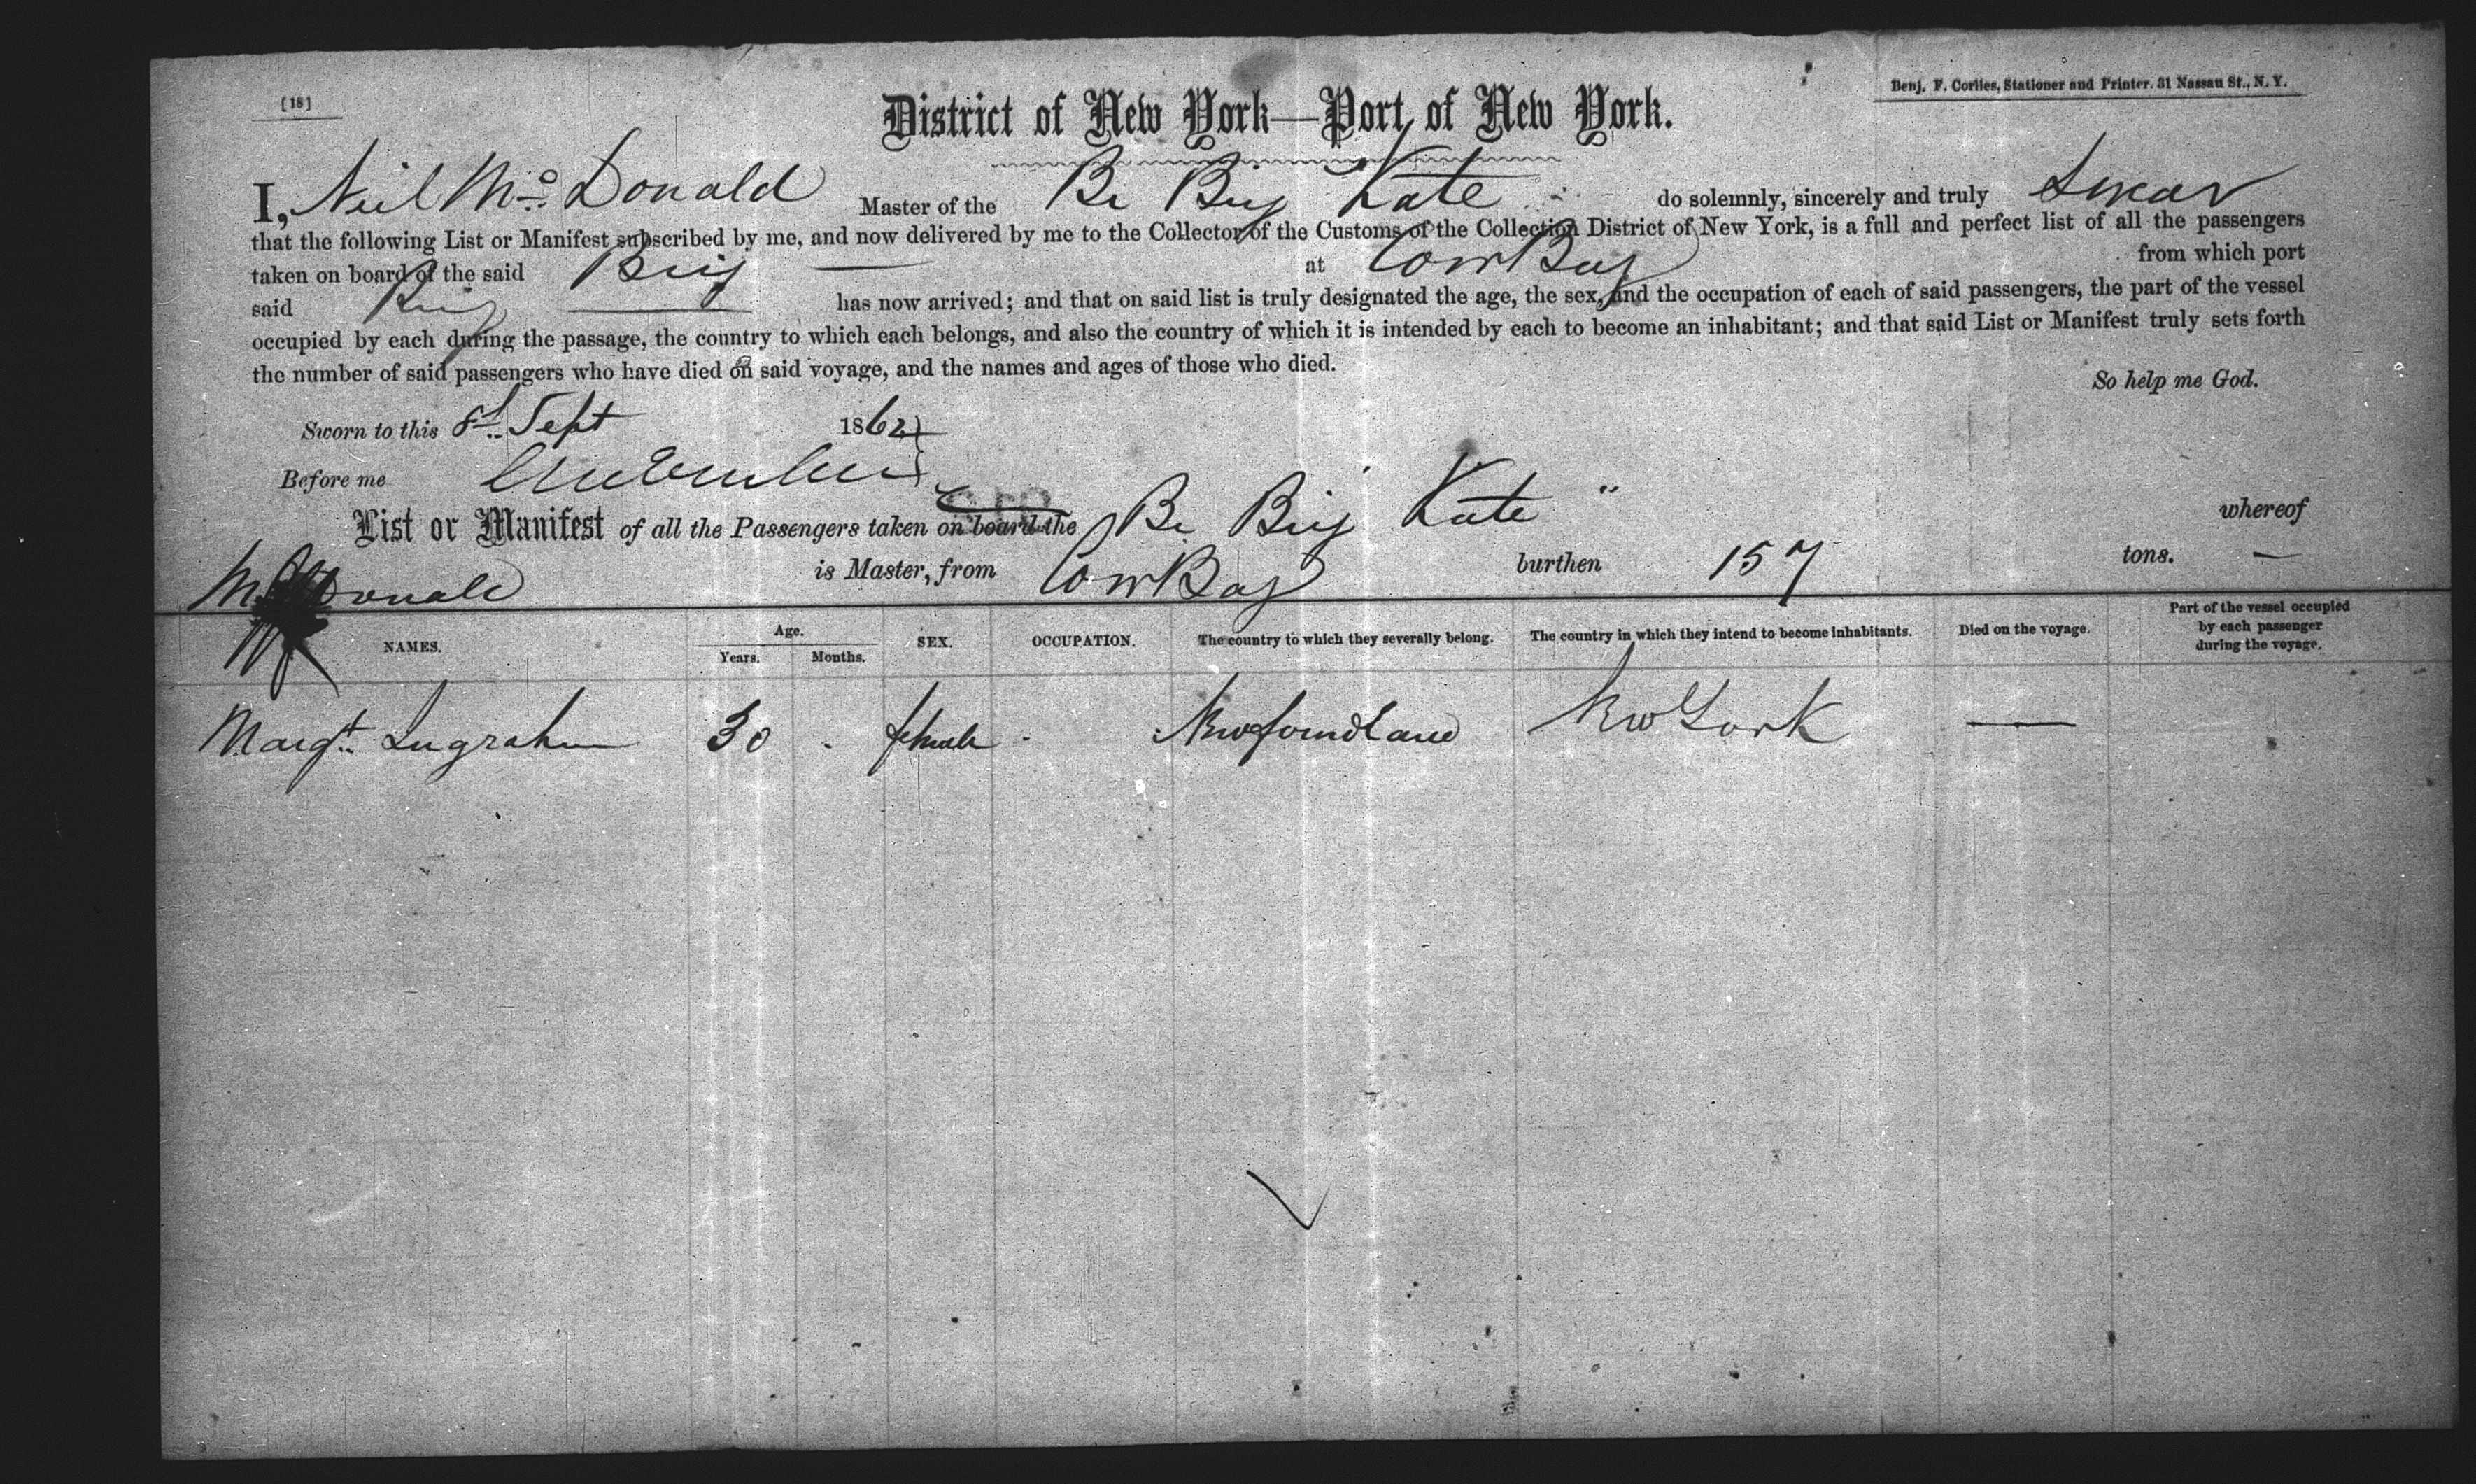 [18]
Benj. F. Corlies, Stationer and Printer. 31 Nassau St., N. Y.
District of New York—Port of New York.
I, Neil McDonald Master of the Br Brig "Kate" do solemnly, sincerely and truly Swear
that the following List or Manifest subscribed by me, and now delivered by me to the Collector of the Customs of the Collection District of New York, is a full and perfect list of all the passengers
taken on board of the said Brig — at Cow Bay from which port
said Brig — has now arrived; and that on said list is truly designated the age, the sex, and the occupation of each of said passengers, the part of the vessel
occupied by each during the passage, the country to which each belongs, and also the country of which it is intended by each to become an inhabitant; and that said List or Manifest truly sets forth
the number of said passengers who have died on said voyage, and the names and ages of those who died.
So help me God.
Sworn to this 8th Sept 1862
Before me
List or Manifest of all the Passengers taken on board the Br Brig "Kate" whereof
McDonald is Master, from Cow Bay burthen 157 tons. —
NAMES. Age. Years. Months. SEX. OCCUPATION. The country to which they severally belong. The country in which they intend to become inhabitants. Died on the voyage. Part of the vessel occupied by each passenger during the voyage.
Margt. Ingraham 30 - female - Newfoundland New York —